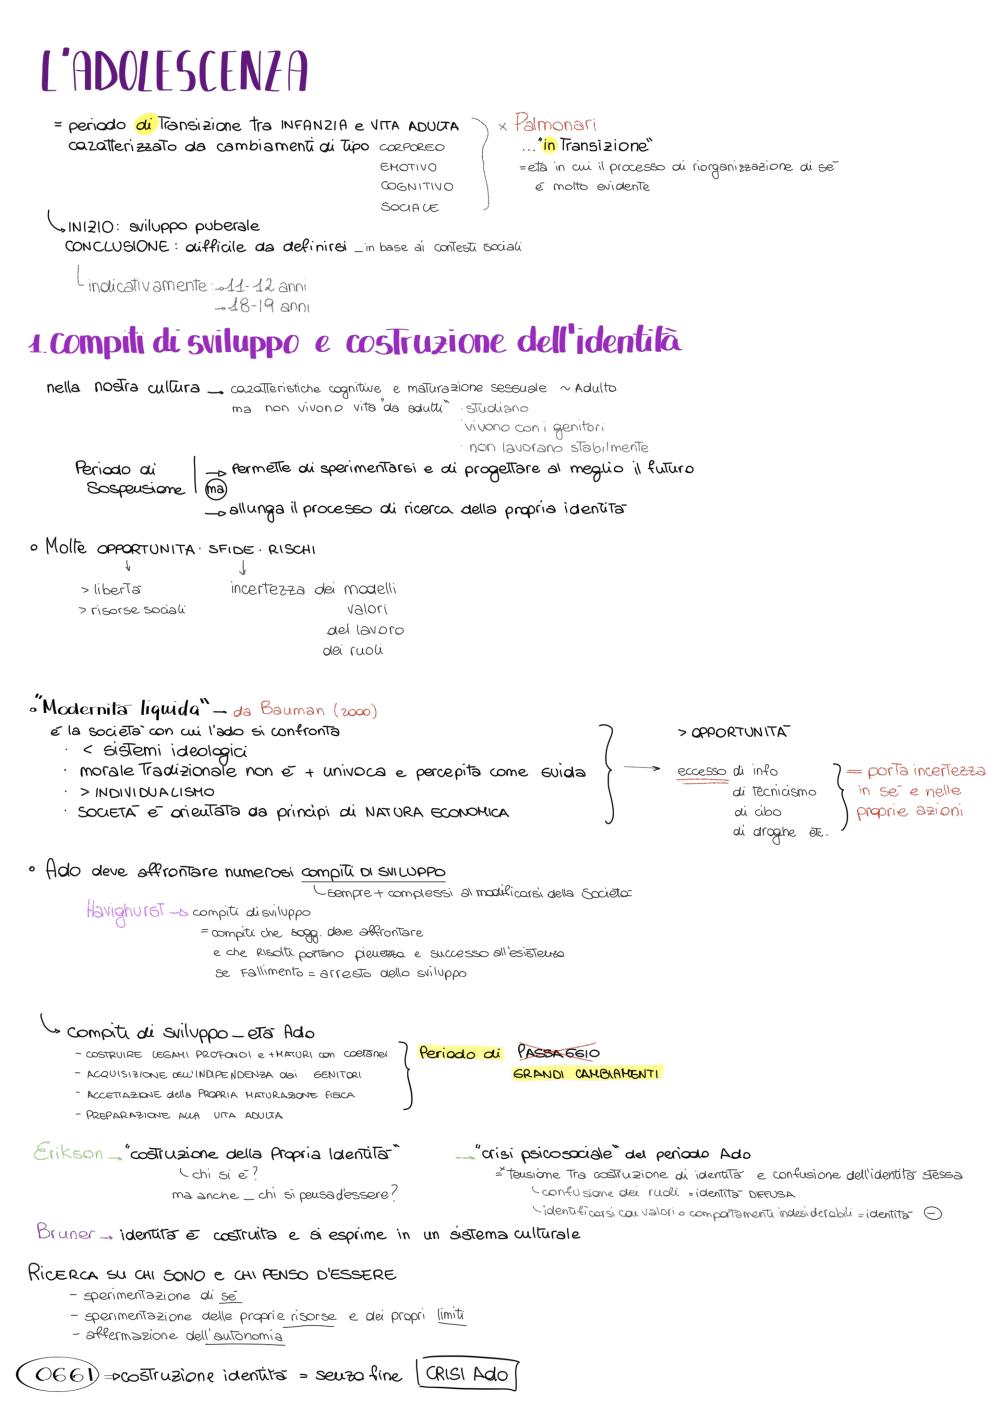 L'ADOLESCENZA
= periodo di Transizione tra INFANZIA e VITA ADULTA
caratterizzato da cambiamenti di tipo CORPOREO
EMOTIVO
COGNITIVO
SOCIALE
x Palmonari
... "in Transizione"
= età in cui il processo di riorganizzazione di sé
è molto evidente
INIZIO: sviluppo puberale
CONCLUSIONE: difficile da definirsi _ in base ai contesti sociali
indicativamente: → 11-12 anni
→ 18-19 anni
1. compiti di sviluppo e costruzione dell'identità
nella nostra cultura → caratteristiche cognitive e maturazione sessuale ~ Adulto
ma non vivono vita "da adulti" · studiano
· vivono con i genitori
· non lavorano stabilmente
Periodo di Sospensione
→ Permette di sperimentarsi e di progettare al meglio il futuro
ma
→ allunga il processo di ricerca della propria identità
° Molte OPPORTUNITÀ · SFIDE · RISCHI
> libertà
> risorse sociali
incertezza dei modelli
valori
del lavoro
dei ruoli
° "Modernità liquida" — da Bauman (2000)
è la società con cui l'ado si confronta
· < sistemi ideologici
· morale Tradizionale non è + univoca e percepita come guida
· > INDIVIDUALISMO
· SOCIETÀ è orientata da principi di NATURA ECONOMICA
> OPPORTUNITÀ
eccesso di info
di tecnicismo
di cibo
di droghe etc.
= porta incertezza
in sé e nelle
proprie azioni
° Ado deve affrontare numerosi compiti DI SVILUPPO
sempre + complessi al modificarsi della Società
Havighurst → compiti di sviluppo
= compiti che sogg. deve affrontare
e che Risolti portano pienezza e successo all'esistenza
se Fallimento = arresto dello sviluppo
compiti di sviluppo _ età Ado
- COSTRUIRE LEGAMI PROFONDI e + MATURI con coetanei
- ACQUISIZIONE DELL'INDIPENDENZA dai GENITORI
- ACCETTAZIONE della PROPRIA MATURAZIONE FISICA
- PREPARAZIONE ALLA VITA ADULTA
Periodo di PASSAGGIO
GRANDI CAMBIAMENTI
Erikson → "costruzione della Propria Identità"
chi si è?
ma anche _ chi si pensa d'essere?
→ "crisi psicosociale" del periodo Ado
= tensione tra costruzione di identità e confusione dell'identità stessa
confusione dei ruoli = identità DIFFUSA
identificarsi con valori o comportamenti indesiderabili = identità ⊖
Bruner → identità è costruita e si esprime in un sistema culturale
RICERCA SU CHI SONO e CHI PENSO D'ESSERE
- sperimentazione di sé
- sperimentazione delle proprie risorse e dei propri limiti
- affermazione dell'autonomia
OGGI ⇒ costruzione identità = senza fine CRISI Ado